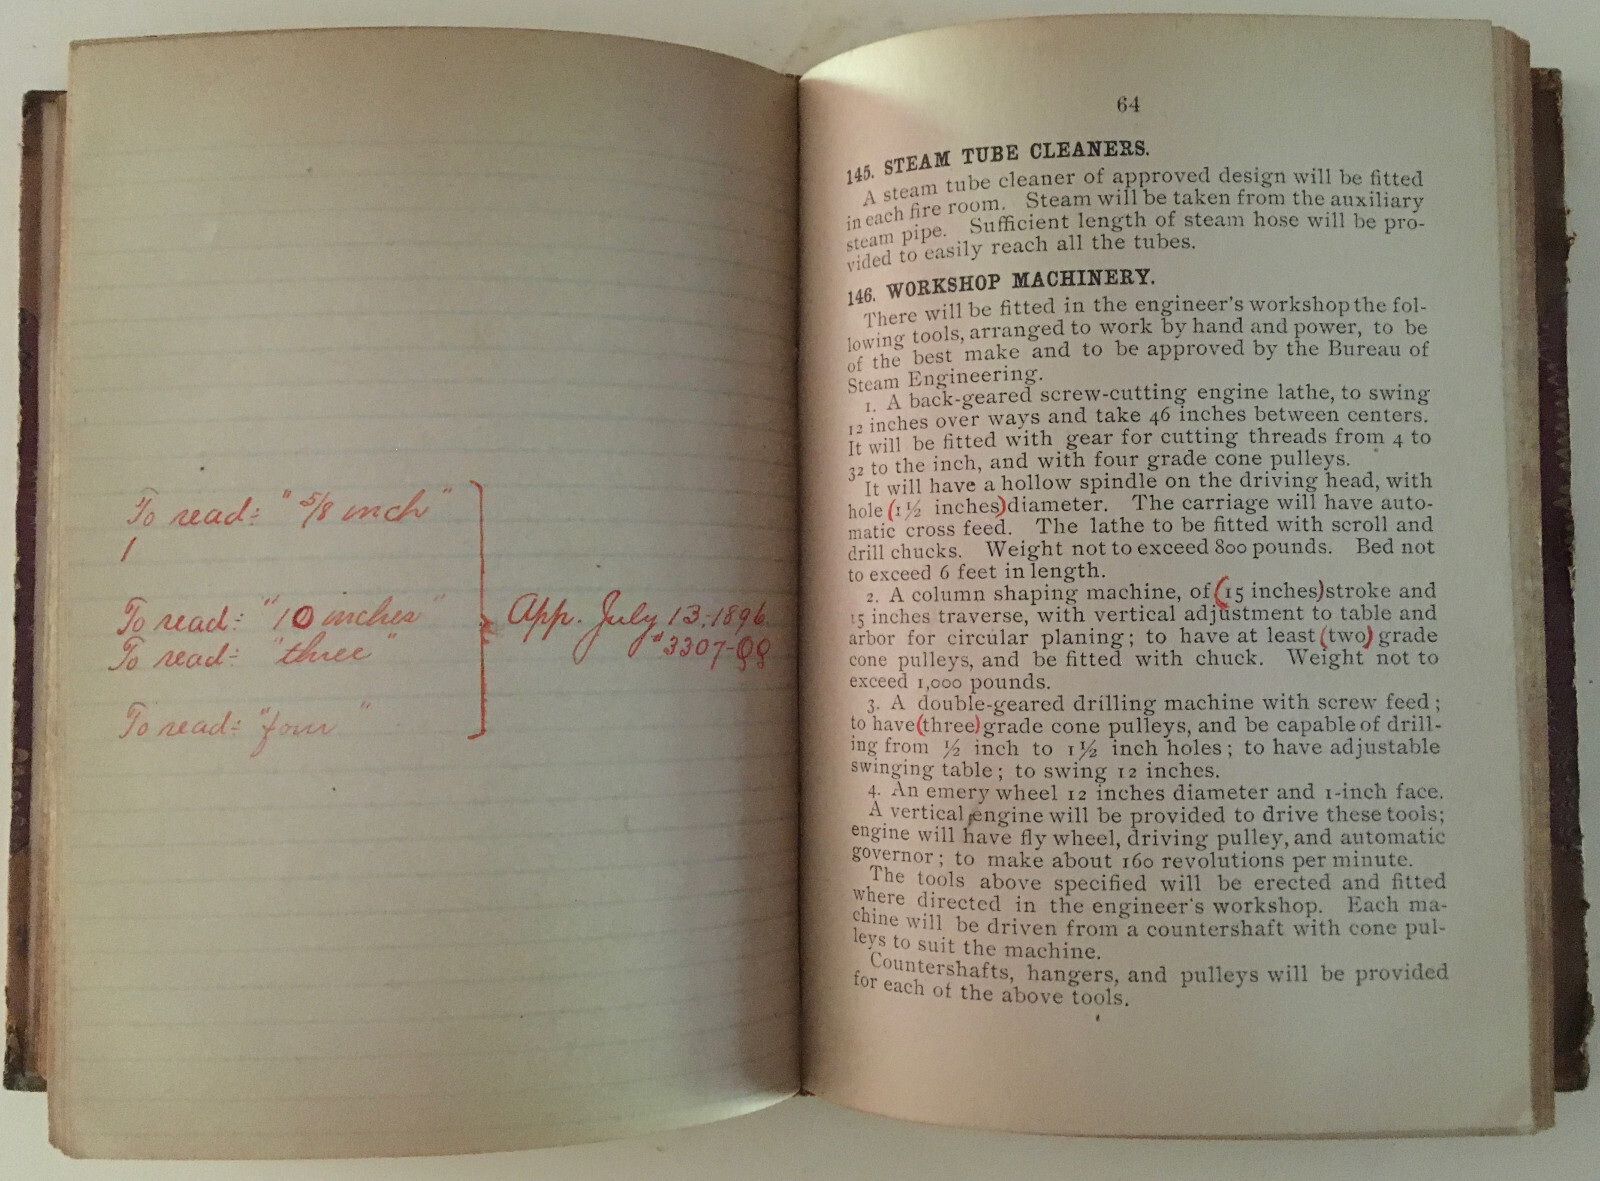 To read: "5/8 inch"
/
To read: "10 inches"
To read: "three"
To read: "four"
App. July 13, 1896.
#3307-QQ
64
145. STEAM TUBE CLEANERS.
A steam tube cleaner of approved design will be fitted
in each fire room. Steam will be taken from the auxiliary
steam pipe. Sufficient length of steam hose will be pro-
vided to easily reach all the tubes.
146. WORKSHOP MACHINERY.
There will be fitted in the engineer's workshop the fol-
lowing tools, arranged to work by hand and power, to be
of the best make and to be approved by the Bureau of
Steam Engineering.
1. A back-geared screw-cutting engine lathe, to swing
12 inches over ways and take 46 inches between centers.
It will be fitted with gear for cutting threads from 4 to
32 to the inch, and with four grade cone pulleys.
It will have a hollow spindle on the driving head, with
hole (1½ inches) diameter. The carriage will have auto-
matic cross feed. The lathe to be fitted with scroll and
drill chucks. Weight not to exceed 800 pounds. Bed not
to exceed 6 feet in length.
2. A column shaping machine, of (15 inches) stroke and
15 inches traverse, with vertical adjustment to table and
arbor for circular planing; to have at least (two) grade
cone pulleys, and be fitted with chuck. Weight not to
exceed 1,000 pounds.
3. A double-geared drilling machine with screw feed;
to have (three) grade cone pulleys, and be capable of drill-
ing from ½ inch to 1½ inch holes; to have adjustable
swinging table; to swing 12 inches.
4. An emery wheel 12 inches diameter and 1-inch face.
A vertical engine will be provided to drive these tools;
engine will have fly wheel, driving pulley, and automatic
governor; to make about 160 revolutions per minute.
The tools above specified will be erected and fitted
where directed in the engineer's workshop. Each ma-
chine will be driven from a countershaft with cone pul-
leys to suit the machine.
Countershafts, hangers, and pulleys will be provided
for each of the above tools.